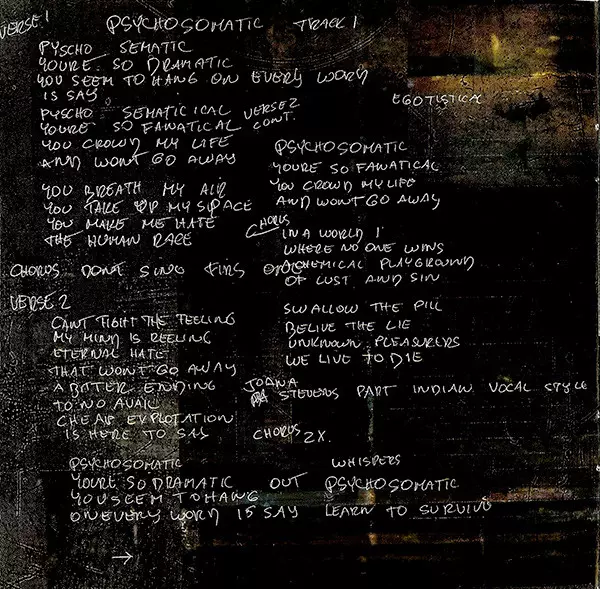 VERSE 1
PSYCHOSOMATIC TRACK 1
PYSCHO SEMATIC
YOURE SO DRAMATIC
YOU SEEM TO HANG ON EVERY WORD
IS SAY
PYSCHO SEMATICICAL
YOURE SO FANATICAL
YOU CROWD MY LIFE
AND WONT GO AWAY
YOU BREATH MY AIR
YOU TAKE UP MY SPACE
YOU MAKE ME HATE
THE HUMAN RACE
CHORUS DONT SING FIRS
VERSE 2
CANT FIGHT THE FEELING
MY MIND IS REELING
ETERNAL HATE
THAT WONT GO AWAY
A BATER ENDING
TO NO AVAIL
CHEAP EXPLOTATION
IS HERE TO SAY
PSYCHOSOMATIC
YOURE SO DRAMATIC
YOU SEEM TO HANG
ON EVERY WORD IS SAY
→
EGOTISTICA
VERSE 2
CONT.
PSYCHOSOMATIC
YOURE SO FANATICAL
YOU CROWD MY LIFE
AND WONT GO AWAY
CHORUS
IN A WORLD
WHERE NO ONE WINS
A CHEMICAL PLAYGROUND
OF LUST AND SIN
SWALLOW THE PILL
BELIVE THE LIE
UNKNOWN PLEASURERS
WE LIVE TO DIE
JOANA
STEVENS PART INDIAN VOCAL STYLE
CHORUS 2X.
OUT
WHISPERS
PSYCHOSOMATIC
LEARN TO SURVIVE